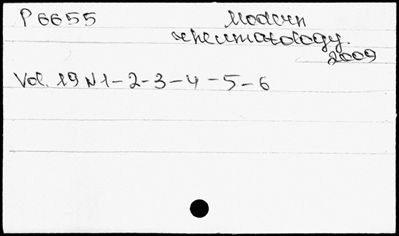 P 6655 Modern
rheumatology.
2009
Vol. 19 N 1-2-3-4-5-6